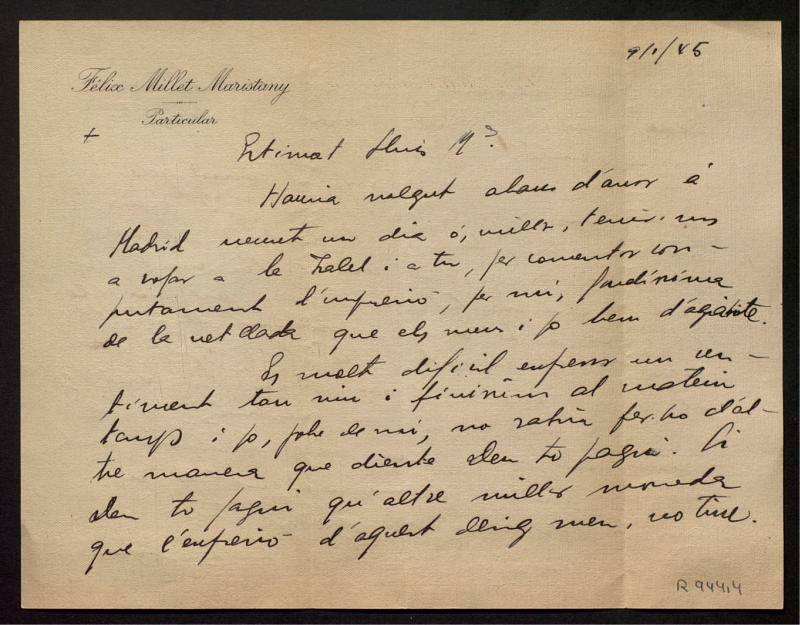 9/1/45
Félix Millet Maristany
Particular
+
Estimat Lluis Mª.
Hauria volgut abans d'anar á
Madrid veuret un dia ó, millor, tenir-vos
a sopar a la Isabel i a tu, per comentar con-
juntament l'impresió, per mi, fondísima
de la vetllada que els meus i jo hem d'agraïrte.
Es molt dificil expresar un sen-
timent tan viu i finísim al mateix
temps i jo, pobre de mi, no sabria fer-ho d'al-
tre manera que diente Deu to pagui. Si
Deu to pagui qu'altre millor moneda
que l'expresió d'aquest desig meu, no tinc.
R 944,4